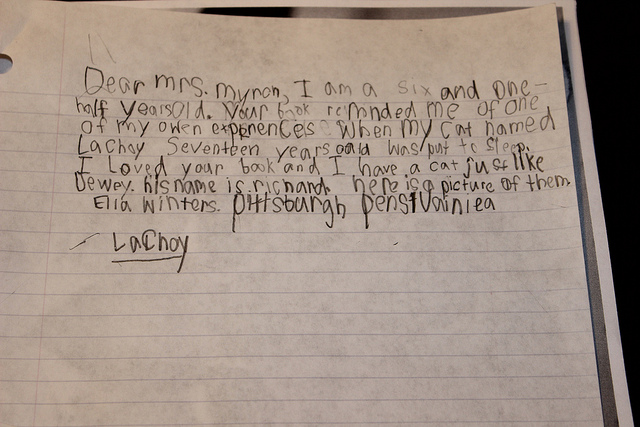 Dear mrs. myron, I am a six and one-
half years old. Your book remnded me of one
of my owen experences when my cat named
Lachoy Seventeen years oald was put to sleep.
I Loved your book and I have a cat just like
Dewey. his name is richard. here is a picture of them.
Ella Winters. pittsburgh pensivainiea
LaChoy